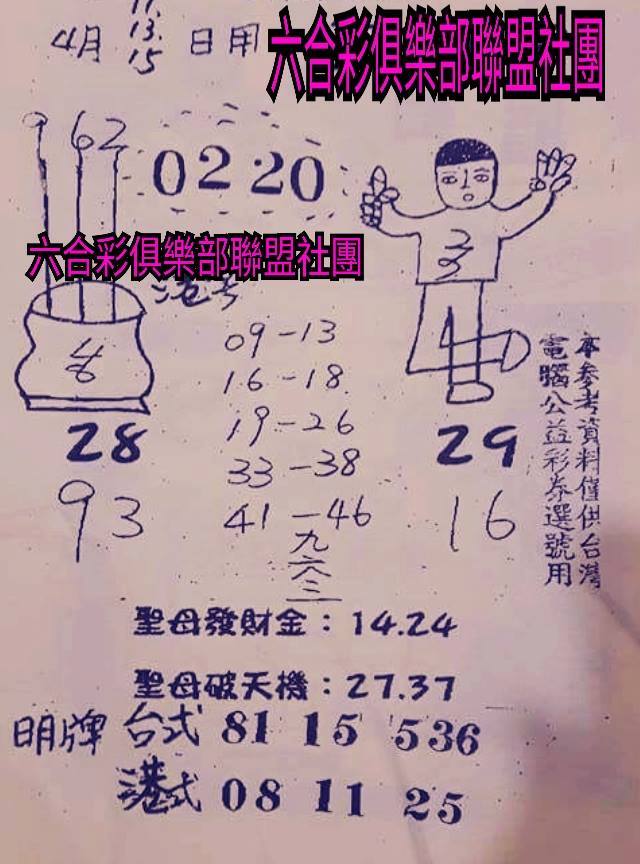 11.
4月 13. 日用
15
六合彩俱樂部聯盟社團
9 62
0220
六合彩俱樂部聯盟社團
港考
09-13
16-18
19-26
33-38
41-46
九六三
28
93
29
16
本參考資料僅供台灣
電腦公益彩券選號用
聖母發財金：14.24
聖母破天機：27.37
明牌 台式 81 15 536
港式 08 11 25